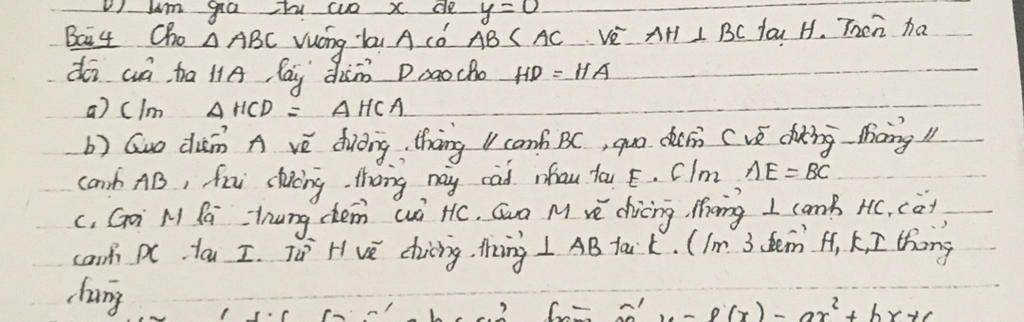 b) Tìm giá trị của x để y = 0
Bài 4 Cho Δ ABC vuông tại A có AB < AC. Vẽ AH ⊥ BC tại H. Trên tia
đối của tia HA lấy điểm D sao cho HD = HA
a) C/m Δ HCD = Δ HCA
b) Qua điểm A vẽ đường thẳng // cạnh BC, qua điểm C vẽ đường thẳng //
cạnh AB, hai đường thẳng này cắt nhau tại E. C/m AE = BC
c, Gọi M là trung điểm của HC. Qua M vẽ đường thẳng ⊥ cạnh HC, cắt
cạnh DC tại I. Từ H vẽ đường thẳng ⊥ AB tại K. C/m 3 điểm H, K, I thẳng
hàng
hàm số y = f(x) = ax² + bx + c